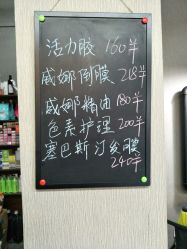 活力胶 160半
威娜倒膜 218半
威娜精油 180半
色素护理 200半
塞巴斯汀发膜
240半